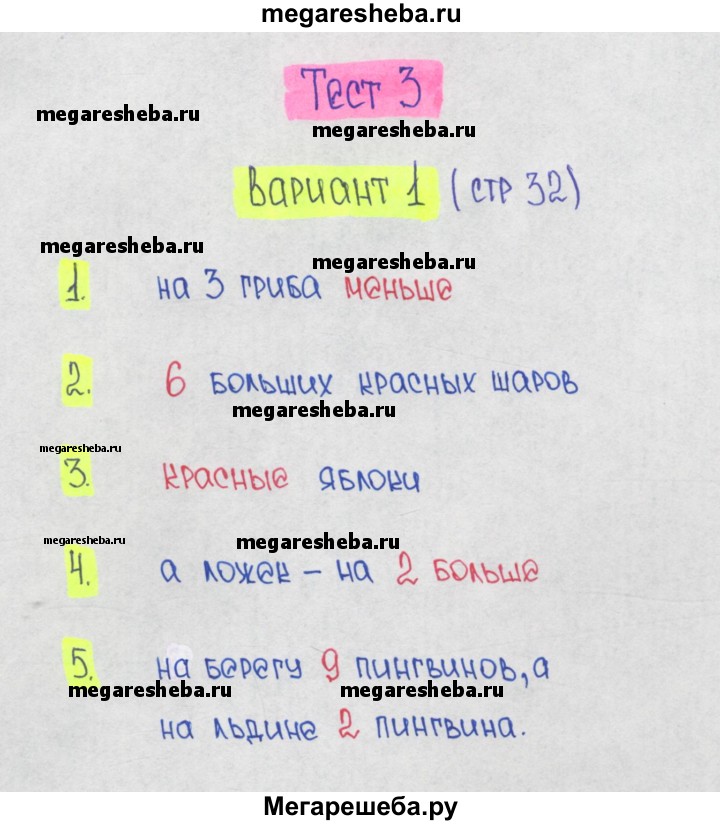 megaresheba.ru
Тест 3
megaresheba.ru
megaresheba.ru
Вариант 1 (стр 32)
megaresheba.ru
megaresheba.ru
1. на 3 гриба меньше
2. 6 больших красных шаров
megaresheba.ru
megaresheba.ru
3. красные яблоки
megaresheba.ru
megaresheba.ru
4. а ложек – на 2 больше
5. на берегу 9 пингвинов, а
megaresheba.ru
megaresheba.ru
на льдине 2 пингвина.
Мегарешеба.ру